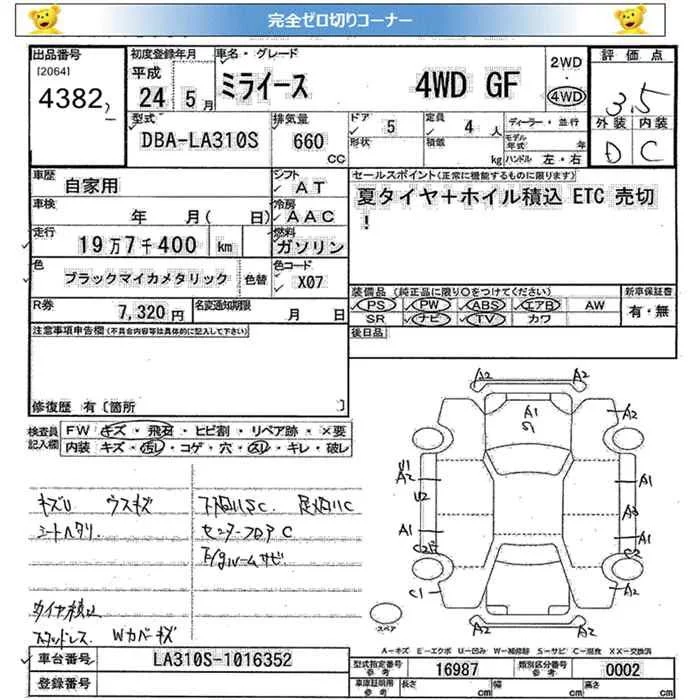 完全ゼロ切りコーナー
出品番号
[2064]
4382
初度登録年月
平成
24 5月
車名・グレード
ミライース 4WD GF
2WD
・
4WD
評価点
3.5
外装 内装
D C
型式
DBA-LA310S
排気量
660
CC
ドア
5
形状
定員
4 人
積載
kg
ディーラー・並行
モデル年式 年
ハンドル 左・右
車歴
自家用
シフト
AT
車検
年 月( 日)
冷房
AAC
走行
19万7千400 km
燃料
ガソリン
色
ブラックマイカメタリック
色替
色コード
X07
R券
7,320円
名変通知期限
月 日
セールスポイント(正常に機能するものに限ります)
夏タイヤ+ホイル積込 ETC 売切
!
装備品 (純正品に限り○をつけてください)
PS PW ABS エアB AW
SR ナビ TV カワ
新車保証書
有・無
後日品
注意事項申告欄(不具合内容等は具体的に記入して下さい)
修復歴 有〔箇所 〕
検査員記入欄
FW キズ・飛石・ヒビ割・リペア跡・×要
内装 キズ・汚レ・コゲ・穴・スレ・キレ・破レ
キズU ウスキズ
シートヘタリ
下回りSC 足廻りC
センターフロアC
タイヤ積込
スタッドレス Wカバーキズ
A2 A2
A1
A2 A2
U1
A2
U2
A1
A1
A3
A1
C2
C1
A2
A2 A2
スペア
A-キズ E-エクボ U-凹み W-補修跡 S-サビ C-腐食 XX-交換済
車台番号
LA310S-1016352
登録番号
型式指定番号
参考
16987
類別区分番号
参考
0002
車庫証明用
参考
長さ cm
幅 cm
高さ cm